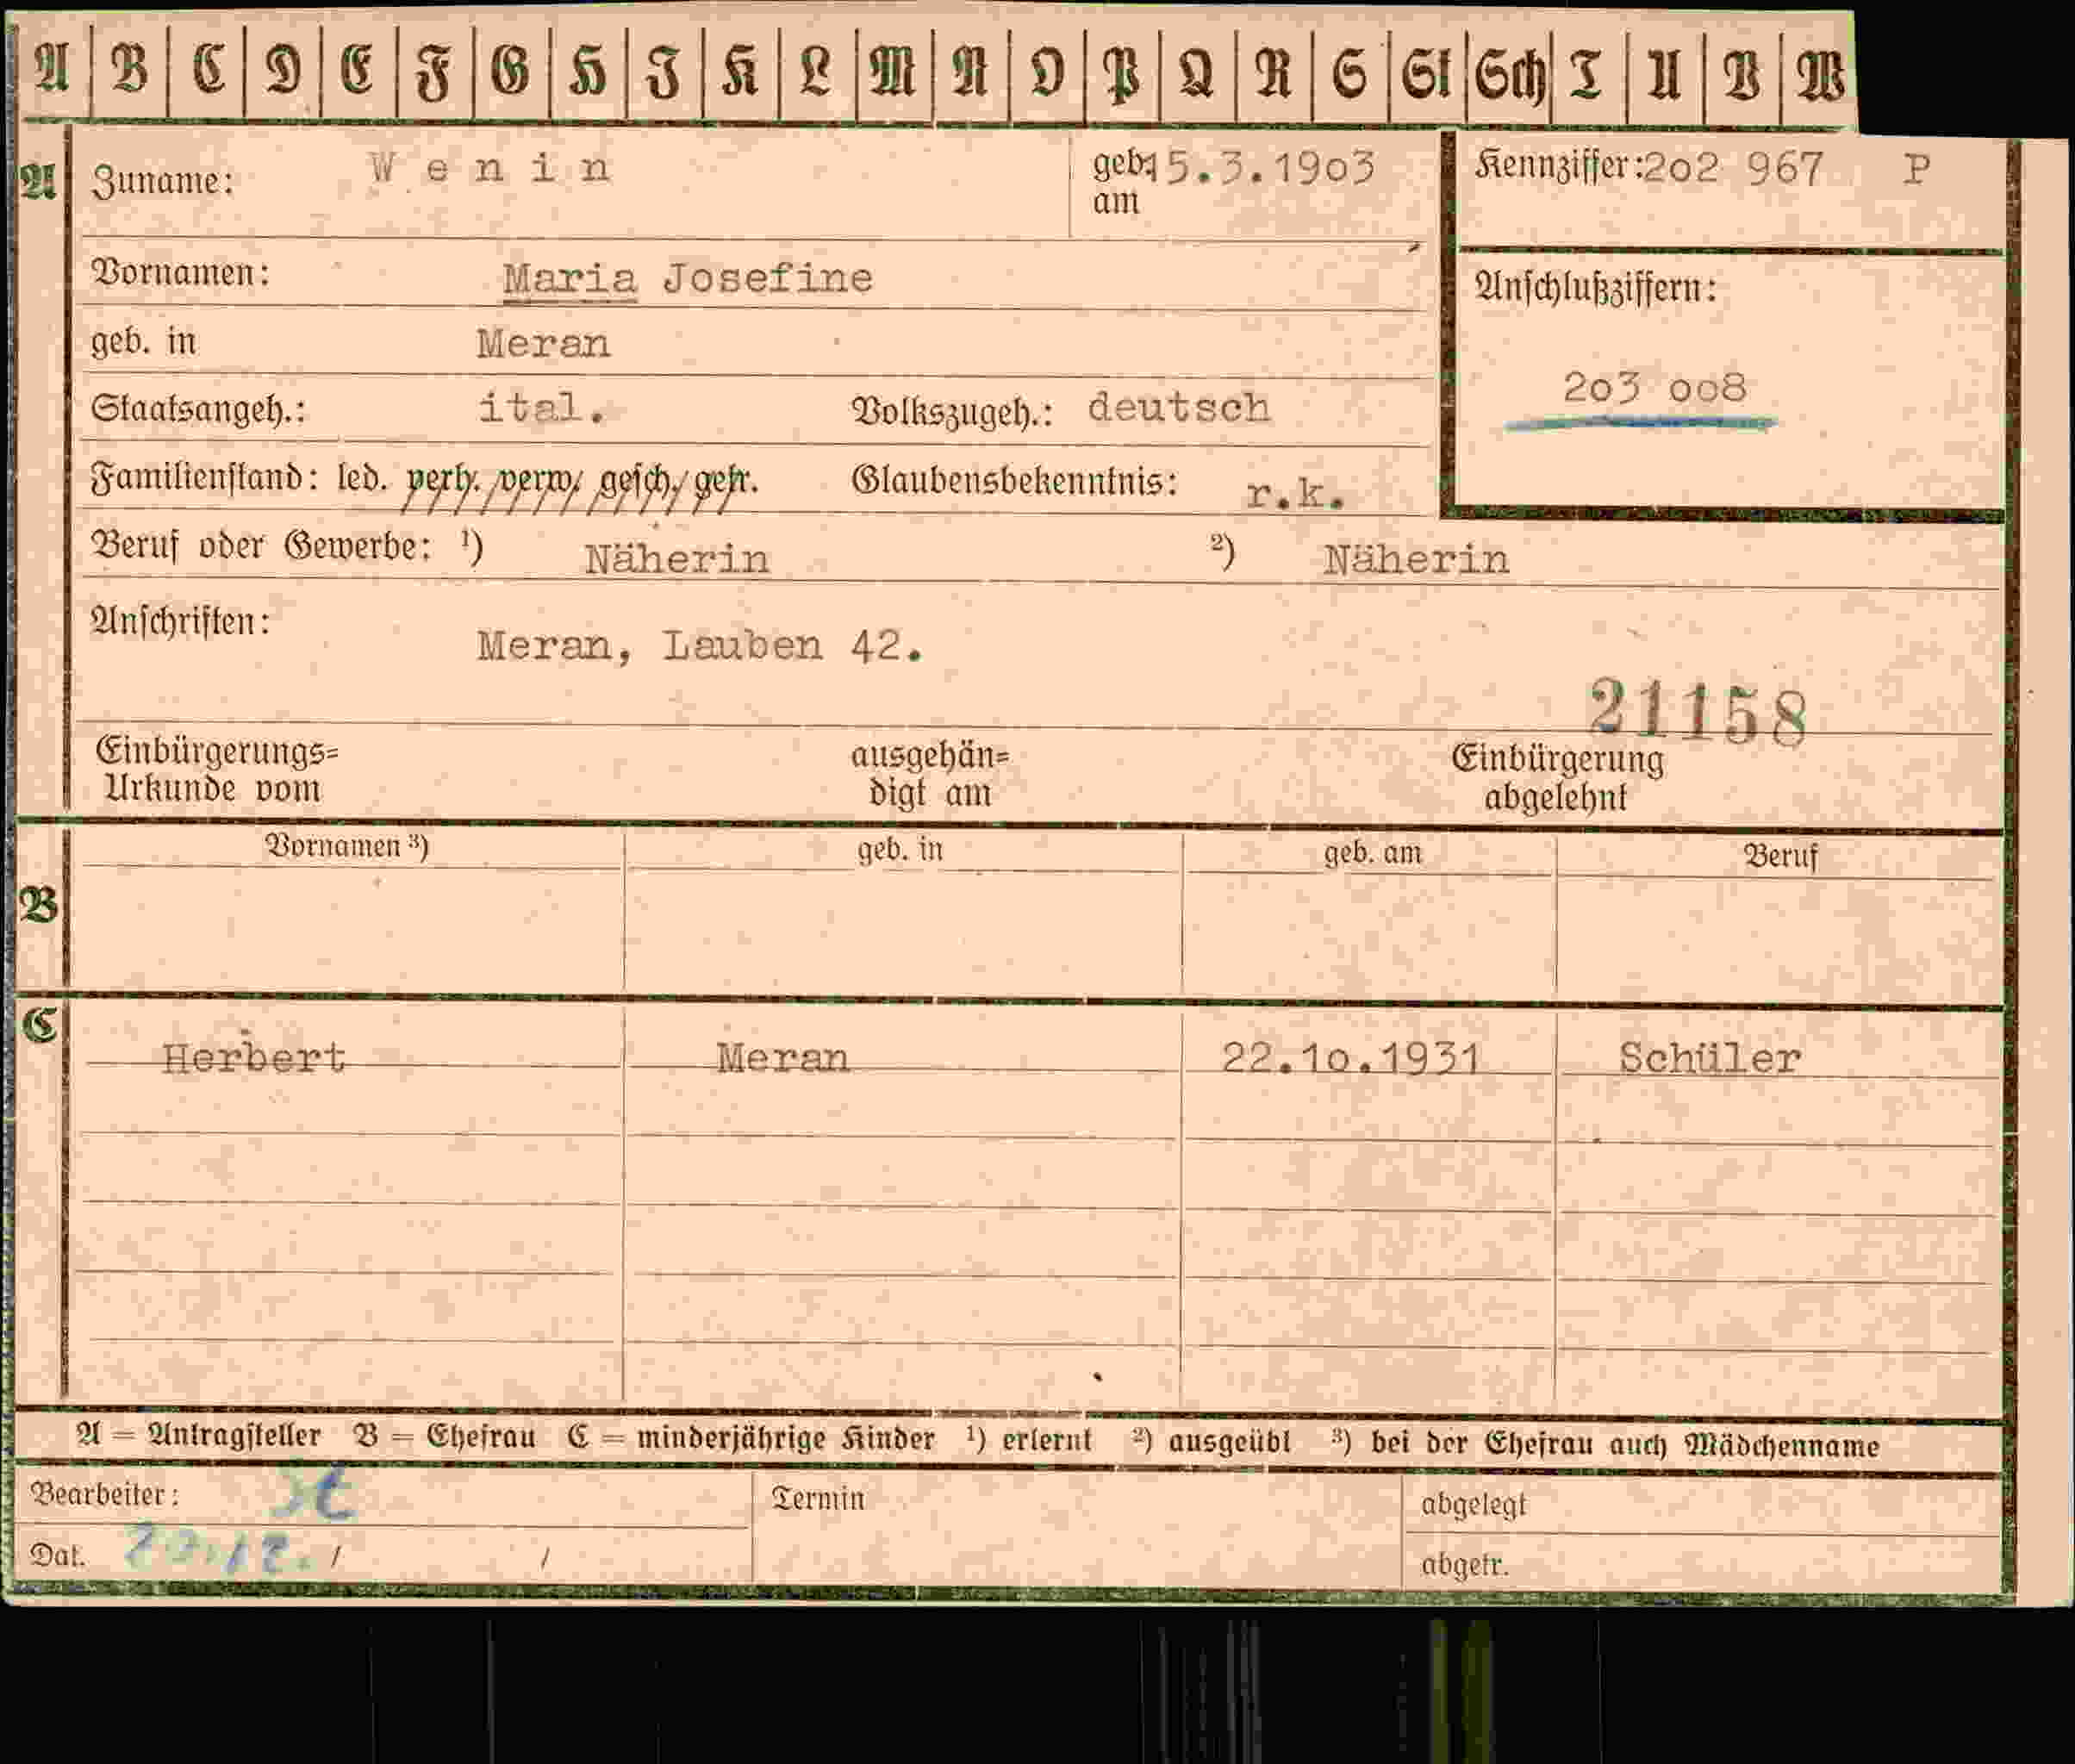 A B C D E F G H I K L M N O P Q R S St Sch T U V W
A Zuname: Wenin geb. am 15.3.1903 Kennziffer: 202 967 P
Vornamen: Maria Josefine Anschlußziffern:
geb. in Meran
203 008
Staatsangeh.: ital. Volkszugeh.: deutsch
Familienstand: led. verh. verw. gesch. getr. Glaubensbekenntnis: r.k.
Beruf oder Gewerbe: ¹) Näherin ²) Näherin
Anschriften: Meran, Lauben 42.
21158
Einbürgerungs= ausgehän= Einbürgerung
Urkunde vom digt am abgelehnt
Vornamen ³) geb. in geb. am Beruf
B
C
Herbert Meran 22.10.1931 Schüler
A = Antragsteller B = Ehefrau C = minderjährige Kinder ¹) erlernt ²) ausgeübt ³) bei der Ehefrau auch Mädchenname
Bearbeiter: St Termin abgelegt
Dat. / / abgetr.